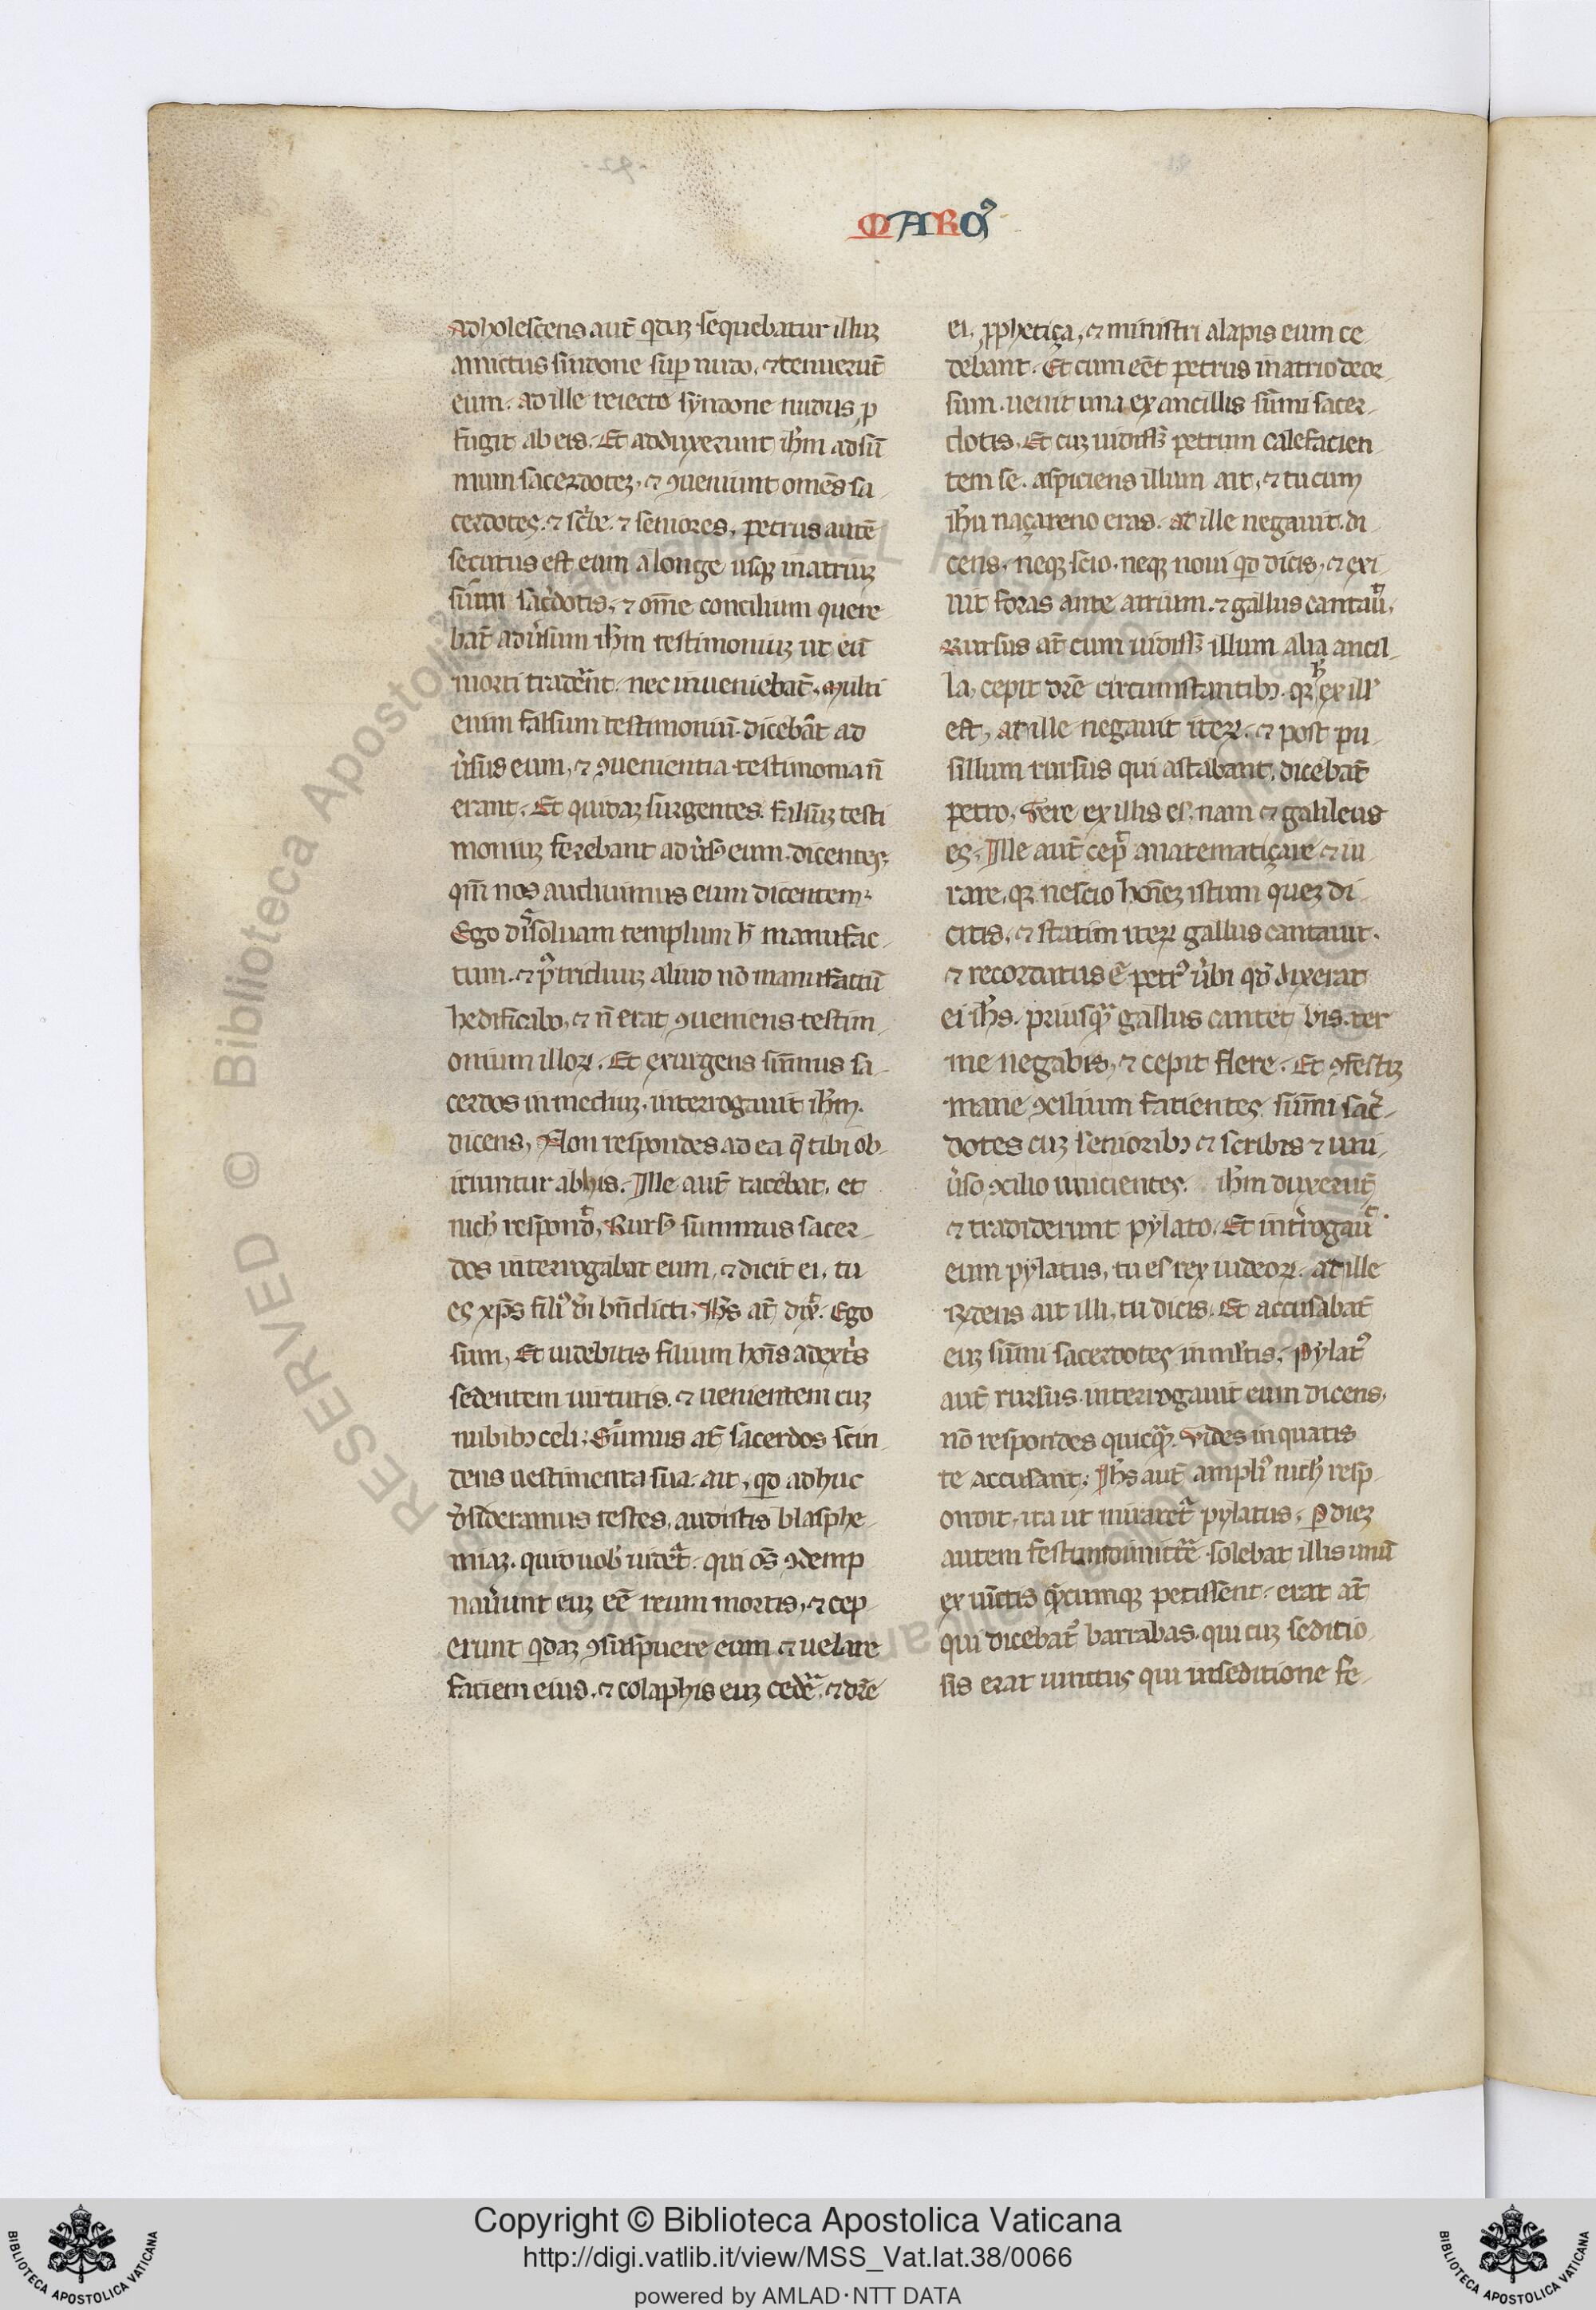 MARC᾽
adholescens aut̄ qdaz sequebatur illuz
amictus sindone sup nudo. ⁊ tenuerūt
eum. ad ille reiecto syndone nudus p
fugit ab eis. Et adduxerunt ihm̄ ad sū
mum sacerdotez. ⁊ ꝯueniunt omēs sa
cerdotes. ⁊ scͥbe. ⁊ seniores. petrus autē
secutus est eum a longe usqꝫ in atriuz
sūmi sac̄dotis. ⁊ om̄e concilium quere
bat̄ adu̓sum ihm̄ testimoniuz ut eū
morti trader̄nt. nec inueniebat̄. Multi
enim falsum testimoniū dicebāt ad
u̓sus eum. ⁊ ꝯuenientia testimonia n̄
erant. Et quidaz surgentes falsuz testi
moniuz ferebant adu̓sꝰ eum. dicentes.
qm̄ nos audiuimus eum dicentem.
Ego dissoluam templum h̄ manufac
tum. ⁊ p̄ triduuz aliud nō manufactū
hedificabo. ⁊ n̄ erat ꝯueniens testim
onium illoꝝ. Et exurgens sūmus sa
cerdos in mediuz. interrogauit ihm̄.
dicens, Non respondes ad ea q̄ tibi ob
iciuntur ab his. Ille aut̄ tacebat. et
nich̄ respondͭ. Rursꝰ summus sacer
dos interrogabat eum. ⁊ dicit ei. tu
es xp̄s filiꝰ di̓ bn̄dicti. Ih̄s at̄ dix̄. Ego
sum, Et uidebitis filium hoīs a dext͛s
sedentem uirtutis. ⁊ uenientem cuz
nubibꝫ celi. Sūmus at̄ sacerdos scin
dens uestimenta sua. ait. qd adhuc
d̓sideramus testes. audistis blasphe
miaz. quid uob̓ uidet̄. qui oēs ꝯdemp
nau̓unt euz eē reum mortis. ⁊ cep
erunt qdaz ꝯspuere eum ⁊ uelare
faciem eius. ⁊ colaphis euz cedēr. ⁊ dr̄e
ei. pphetiça. ⁊ ministri alapis eum ce
debant. Et cum eēt petrus in atrio deor
sum. uenit una ex ancillis sūmi sacer
dotis. Et cuz uidissꝫ petrum calefacien
tem se. aspiciens illum ait. ⁊ tu cum
ihū naçareno eras. at ille negauit. di
cens. neqꝫ scio. neqꝫ noui qd dicis. ⁊ exi
uit foras ante atrium. ⁊ gallus cantauͭ.
Rursus at̄ cum uidissꝫ illum alia ancil
la, cepit dr̄e circumstantibꝫ. qꝫ h̓ ex ill̓
est, at ille negauit iteꝝ. ⁊ post pu
sillum rursus qui astabant. dicebāt
petro. Vere ex illis es. nam ⁊ galileus
es. Ille aut̄ cepͭ anatematiçare ⁊ iu
rare. qꝫ nescio hoīez istum quez di
citis. ⁊ statim iteꝝ gallus cantauit.
⁊ recordatus ē petrꝰ u̓bi qd̄ dixerat
ei ih̄s. priusqᷓ gallus cantet bis. ter
me negabis. ⁊ cepit flere. Et ꝯfestiz
mane ꝯcilium facientes sūmi sac̄
dotes cuz senioribꝫ ⁊ scribis ⁊ uni
u̓so ꝯcilio uincientes. ihm̄ duxerūt
⁊ tradiderunt pylato. Et int̓rogauͭ.
eum pylatus, tu es rex iudeoꝝ. at ille
rn̄dens ait illi, tu dicis. Et accusabāt
euz sūmi sacerdotes in ml̓tis. pylatꝰ
aut̄ rursus interrogauit eum dicens,
nō respondes quicqᷓ. vides in quātis
te accusant. Ih̄s aut̄ ampliꝰ nich̓ resp
ondit. ita ut miraretᷓ pylatus. p diez
autem festum dimitte͛. solebat illis unū
ex uīctis qᷓcumqꝫ petissēnt. erat at̄
qui dicebat̓ barrabas. qui cuz seditio
sis erat uinctus qui in seditione fe
Copyright © Biblioteca Apostolica Vaticana
http://digi.vatlib.it/view/MSS_Vat.lat.38/0066
powered by AMLAD·NTT DATA